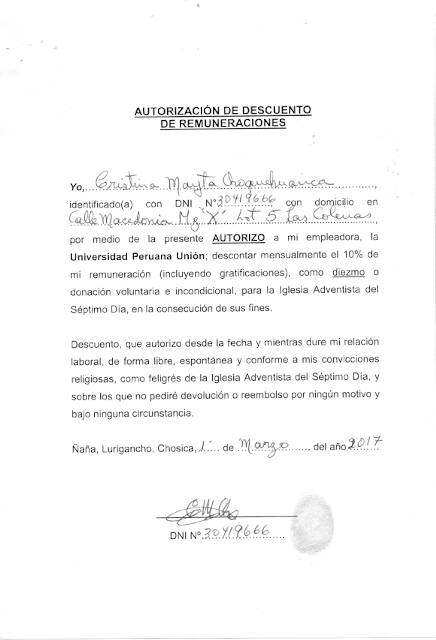 AUTORIZACIÓN DE DESCUENTO
DE REMUNERACIONES
Yo, Cristina Mayta Choquehuanca,
identificado(a) con DNI N° 30419666 con domicilio en
Calle Macedonia Mz "X" Lt 5 Las Colinas,
por medio de la presente AUTORIZO a mi empleadora, la
Universidad Peruana Unión; descontar mensualmente el 10% de
mi remuneración (incluyendo gratificaciones), como diezmo o
donación voluntaria e incondicional, para la Iglesia Adventista del
Séptimo Día, en la consecución de sus fines.
Descuento, que autorizo desde la fecha y mientras dure mi relación
laboral, de forma libre, espontánea y conforme a mis convicciones
religiosas, como feligrés de la Iglesia Adventista del Séptimo Día, y
sobre los que no pediré devolución o reembolso por ningún motivo y
bajo ninguna circunstancia.
Ñaña, Lurigancho, Chosica, 1° de Marzo del año 2017
DNI N° 30419666